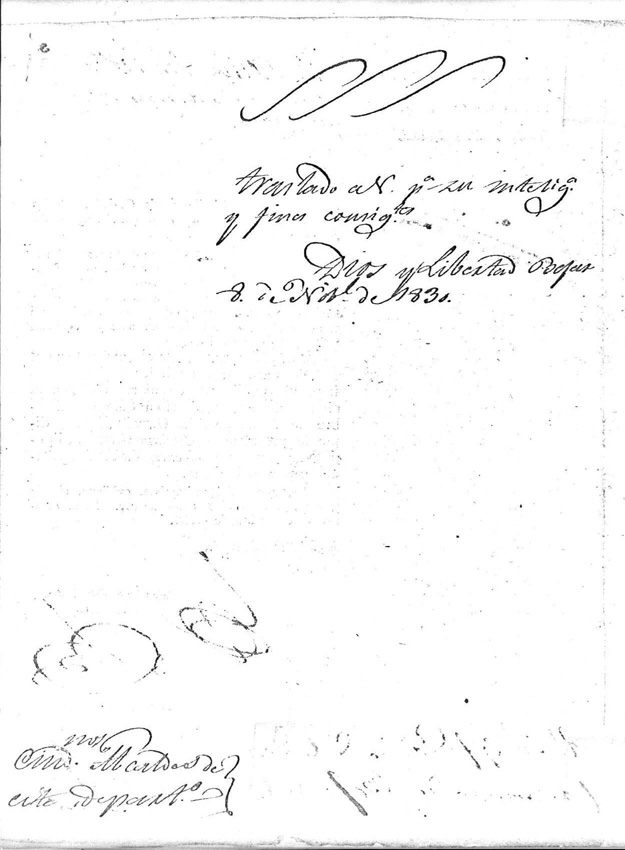 traslado a V. pª su inteligª
y fines consigtes
Dios y Libertad Bejar
8. de Nobe. de 1830.
Cmos
Ciud. Alcaldes de
este departo.